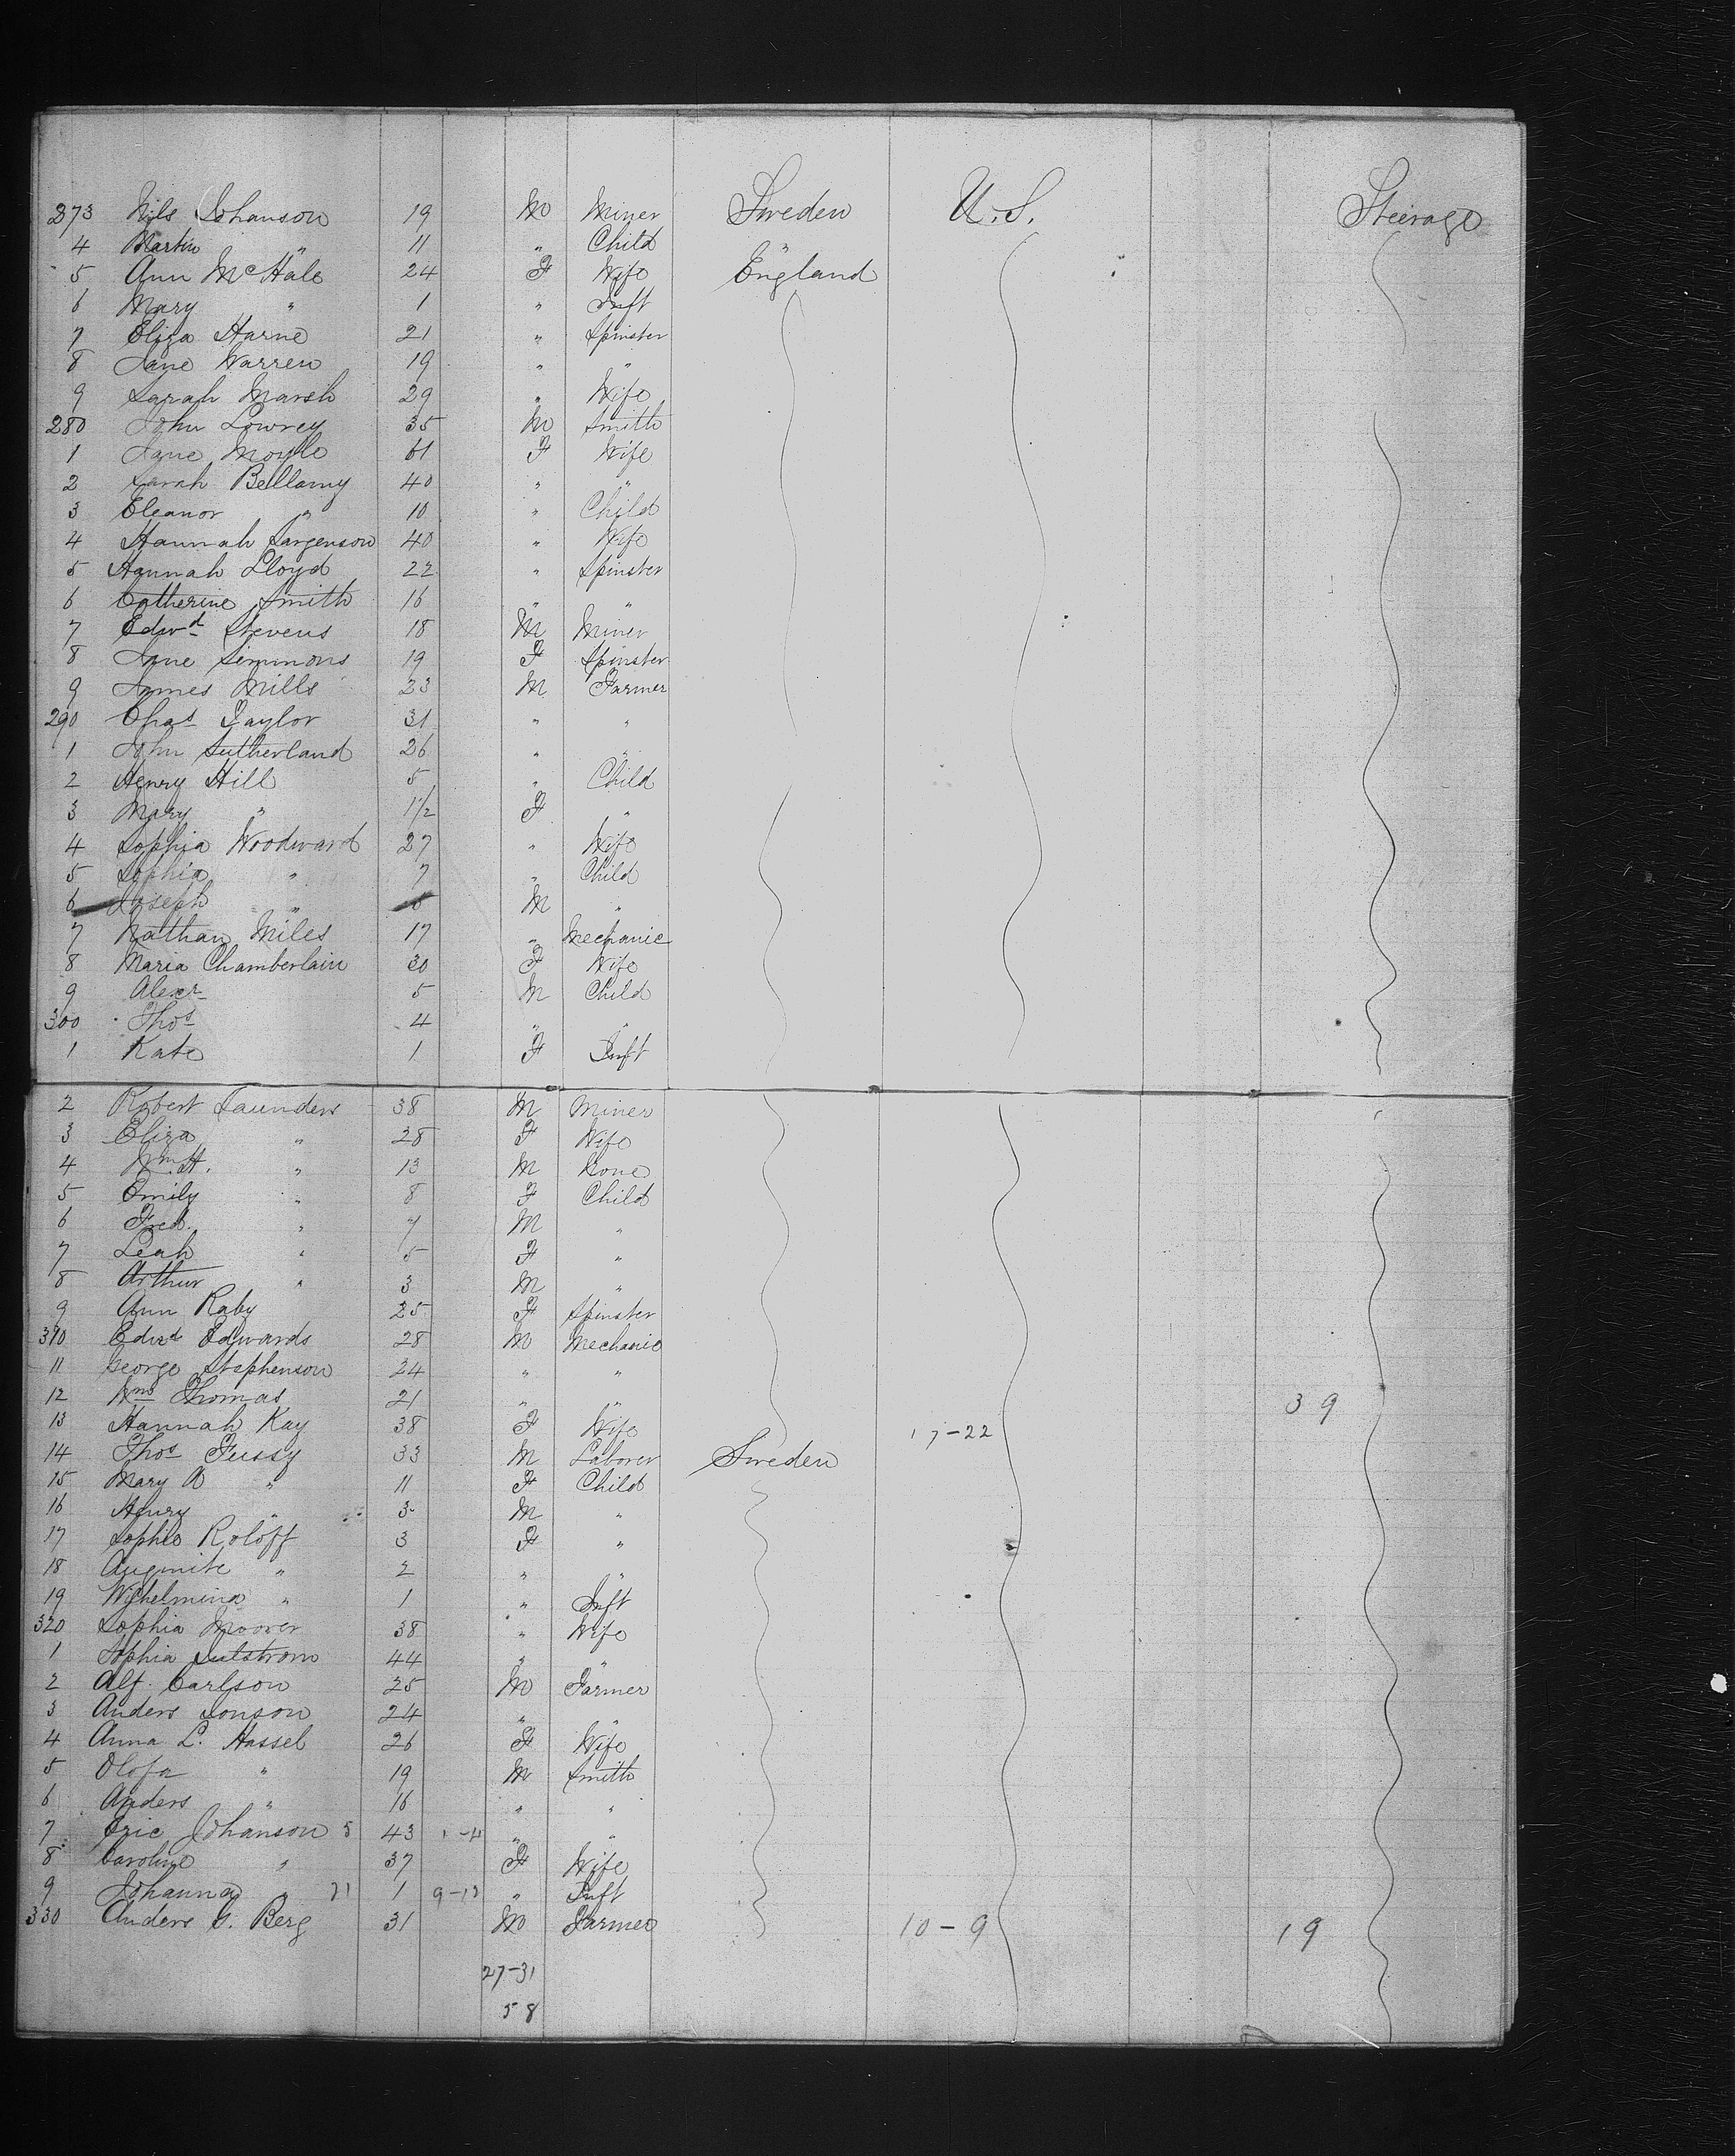 273 Nils Johanson 19 M Miner Sweden U.S. Steerage
4 Martin " 11 " Child "
5 Ann McHale 24 F Wife England
6 Mary " 1 " Inft
7 Eliza Harne 21 " Spinster
8 Jane Warren 19 " "
9 Sarah Marsh 29 " Wife
280 John Lowrey 35 M Smith
1 Jane Moyle 61 F Wife
2 Sarah Bellamy 40 " "
3 Eleanor " 10 " Child
4 Hannah Jargenson 40 " Wife
5 Hannah Lloyd 22 " Spinster
6 Catherine Smith 16 " "
7 Edwd Stevens 18 M Miner
8 Jane Simmons 19 F Spinster
9 James Mills 23 M Farmer
290 Chas Taylor 31 " "
1 John Sutherland 26 " "
2 Henry Hill 5 " Child
3 Mary " 1 1/2 F "
4 Sophia Woodward 27 " Wife
5 Sophia " 7 " Child
6 Joseph " M "
7 Nathan Miles 17 " Mechanic
8 Maria Chamberlain 30 F Wife
9 Alexr 5 M Child
300 Thos 4 " "
1 Kate 1 F Inft
2 Robert Saunders 38 M Miner
3 Eliza " 28 F Wife
4 Wm H. " 13 M None
5 Emily " 8 F Child
6 Fred. " 7 M "
7 Leah " 5 F "
8 Arthur " 3 M "
9 Ann Raby 25 F Spinster
310 Edwd Edwards 28 M Mechanic
11 George Stephenson 24 " "
12 Wm Thomas 21 " " 39
13 Hannah Kay 38 F Wife 17-22
14 Thos Fussy 33 M Laborer Sweden
15 Mary A " 11 F Child
16 Henry " 3 M "
17 Sophie Roloff 3 F "
18 " 2 " "
19 Wilhelmina " 1 " Inft
320 Sophia Moover 38 " Wife
1 Sophia 44 " "
2 Alf. Carlson 25 M Farmer
3 Anders Jonson 24 " "
4 Anna L. Hassel 26 F Wife
5 Olofa " 19 M Smith
6 Anders " 16 " "
7 Eric Johanson 5 43 1-4 " "
8 Caroline " 37 F Wife
9 Johanna " 21 1 9-13 " Inft
330 Anders G. Berg 31 M Farmer 10-9 19
27-31
58